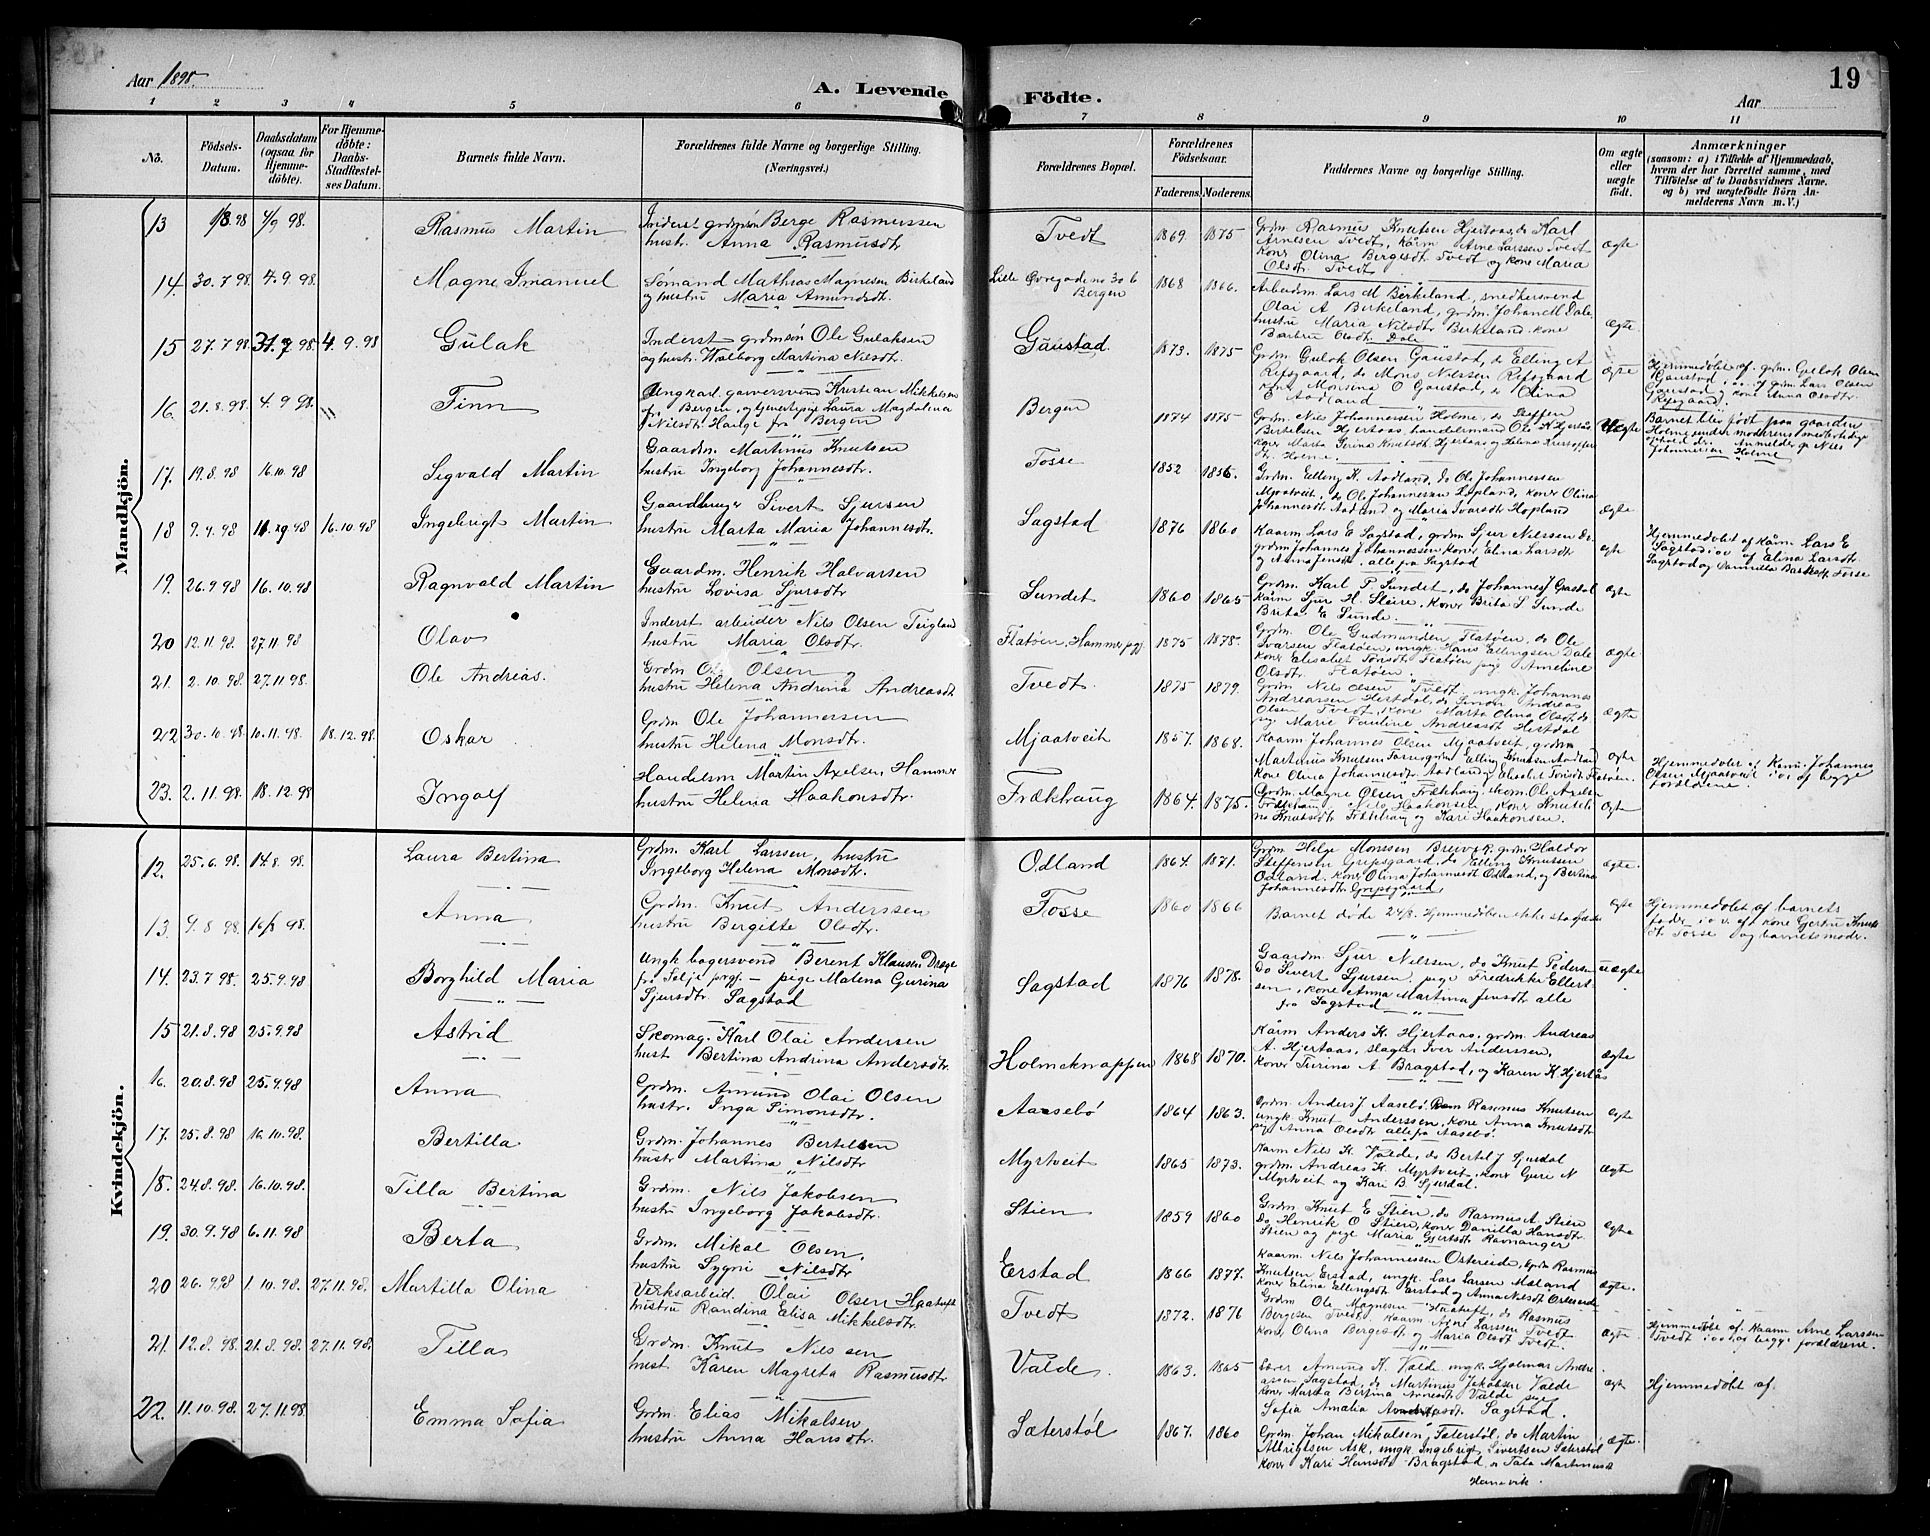 Aar 1898.
A. Levende
Födte.
19
Aar
1 2 3 4 5 6 7 8 9 10 11
No.
Födsels-
Datum.
Daabsdatum
(ogsaa for
Hjemme-
döbte).
For Hjemme-
döbte:
Daabs-
Stadfæstel-
ses Datum.
Barnets fulde Navn.
Forældrenes fulde Navne og borgerlige Stilling.
(Næringsvei).
Forældrenes Bopæl.
Forældrenes
Födselsaar.
Faderens. Moderens.
Faddernes Navne og borgerlige Stilling.
Om ægte
eller
uægte
födt.
Anmærkninger
(saasom: a) i Tilfælde af Hjemmedaab,
hvem der har forrettet samme, med
Tilföielse af to Daabsvidners Navne.
og b) ved uægtefödte Börn An-
melderens Navn m. V.)
Mandkjön.
13 1/8 98 4/9 98. Rasmus Martin
Berge Rasmussen
hustr. Anna Rasmusdtr
Tvedt 1869. 1875
Grdm Rasmus Knutsen Hjertaas, ds Karl
Arnesen Tvedt, Kårm Arne Larssen Tvedt
koner Olina Bergesdt Tvedt og kone Maria
Olsdt Tvedt
ægte
14. 30.7 98 4.9.98. Magne Imanuel
Sømand Mathias Magnesen Birkeland
og hustru Maria Amundsdt.
Lille Øvregade no 30 b
Bergen
1868 1866.
Arbeidm. Lars M Birkeland, snedkersvend
Olai A Birkeland, grdm. Johan M Dale
hustru Maria Nilsdtr Birkeland. kone
Barbru Olsdt. Dale
ægte
15 27.7 98 31.7 98. 4.9.98 Gulak
Inderst grdmsøn Ole Gulaksen
og hustr. Walborg Martina Nilsdt.
Gaustad. 1873. 1875
Grdm. Gulak Olsen Gaustad, ds Elling A
Refsgaard, ds Mons Nilssen Refsgaard
kone Monsina O Gaustad, ds Olina
E Aadland
ægte
Hjemmedøbt af grdm. Gulak Olsen
Gaustad, i o. v. af grdm Lars Olsen
Gaustad, kone Anna Olsdtr.
Refsgaard).
16. 21.8.98. 4.9 98. Finn
Ungkarl garversvend Kristian Mikkelsen
fra Bergen, og tjenestepige Laura Magdalena
Nilsdt Hauge fra Bergen
Bergen 1874 1875
Grdm. Nils Johannessen Holme, ds Steffen
Bertelsen Hjertaas, handelsmand Ole K Hjertås
koner Marta Serina Knutsdt. Hjertaas og Helena Kristoffer
dt. Holme.
Uægte
Barnet blev født paa gaarden
Holme under moderens midlertidige
ophold der. Anmelder gr Nils
Johannessen Holme
17. 19.8.98 16.10.98 Sigvald Martin
Gaardm. Martinus Knutsen
hustru Ingeborg Johannesdtr.
Fosse 1852 1856.
Grdm. Elling K. Aadland, ds Ole Johannessen
Mjaatveit, ds Ole Johannessen Lepland, koner Olina
Johannesdt Aadland og Maria Ivarsdt Hopland
ægte
18 9.9.98 16.10.98 Ingebrigt Martin
Gaardbruger Sivert Sjursen
hustru Marta Maria Johannesdtr.
Sagstad 1876 1860
Kaarm Lars E Sagstad, grdm Sjur Nilssen Do
grdm Johannes Johannessen koner Elina Larsdt
og Anna Jensdt, alle fra Sagstad
ægte
Hjemmedøbt af Kårm. Lars E
Sagstad i o v af Elina Larsdt
Sagstad og Danilla Fosse
19. 26.9 98 16.10.98 Ragnvald Martin
Gaardm. Henrik Halvarsen
hustru Lovisa Sjursdtr
Sundet 1860 1865
Grdm. Karl P Sundet, ds Johannes J
kårm Sjur H Steire, koner Brita S Sunde
Brita E Sunde.
ægte
20 12.11.98 27.11 98 Olav
Inderst arbeider Nils Olsen Teigland
hustru Maria Olsdtr.
Flatøen, Hammer pgj. 1875 1878.
Grdm. Ole Gudmundsen Flatøen, ds Ole
Ivarsen Flatøen, ungk. Hans Ellingsen Dale
koner Elisabet Tonsdt. Flatøen pig Anneline
Olsdt. Flatøen.
ægte
21. 2.10.98 27.11.98 Ole Andreas.
Grdm Ole Olsen og
hustru Helena Andrina Andreasdt
Tvedt. 1875 1879.
Grdm Nils Olsen Tvedt. ungk. Johannes
Andreassen Hestdal, ds Simon Andreas
Olsen Tvedt, kone Marta Olina Olsdt, ds
pig Marie Pauline Andreasdt Hestdal
ægte
22 30.10.98 10.11.98. 18.12.98. Oskar
Grdm Ole Johannessen
hustru Helena Monsdtr.
Mjaatveit 1857. 1868.
Kaarm. Johannes Olsen Mjaatveit, grdm
Martinus Knutsen Elling Knutsen Aadland
kone Olina Johannesdtr Aadland og Elisabet Tonsdt Flatøen.
ægte
Hjemmedøbt af Kårm. Johannes
Olsen Mjaatveit i o v af begge
forældrene.
23. 2.11.98. 18.12.98 Ingolf
Handelsm Martin Axelsen, Hammer
hustru Helena Haakonsdtr.
Frækhaug 1864. 1875.
Grdm. Magne Olsen Frækhaug, skom. Ole Axelsen
Frækhaug, Nils Haakonsen koner Knutsi-
na Knutsdtr Frækhaug og Kari Haakonsen.
ægte
Kvindekjön.
12. 25.6.98. 14.8.98. Laura Bertina
Grdm. Karl Larssen, hustru
Ingeborg Helena Monsdtr.
Odland 1864. 1871.
Grdm Helge Monssen Breivik, grdm. Haldor
Steffensen Gripsgaard, ds Elling Knutsen
Odland. koner Olina Johannesdt Odland, og Bertina
Johannesdt Gripsgaard
ægte
13. 9.8 98. 16/8 98. Anna
Grdm. Knut Andersson
hustru Bergitte Olsdtr.
Fosse 1860 1866
Barnet døde 24/8. Hjemmedøben ikke stadfæstet
ægte
Hjemmedøbt af barnets
fader i o v. af kone Gjertru Knuts
dt. Fosse og barnets moder.
14. 23.7 98. 25.9.98 Borghild Maria
Ungk. bagersvend Berent Klausen Drage
fra Selje prgj. — pige Malena Gurina
Sjursdtr. Sagstad
Sagstad 1876 1878.
Gaardm. Sjur Nilssen, ds Knut Pedersen
Do Sivert Sjursen, pige Fredrikke Ellert-
sen, kone Anna Martina Jensdt alle
fra Sagstad
uægte
15 21.8.98 25.9.98 Astrid
Skomag. Karl Olai Andersen
hust. Bertina Andrina Andersdtr.
Holmeknappen 1868 1870.
Kårm Anders K. Hjertaas, grdm. Andreas
A. Hjertaas, slagter Iver Anderssen,
koner Turina A Bragstad, og Karen K Hjertås
ægte
16. 20.8.98 25.9.98 Anna
Grdm. Amund Olai Olsen
hustr. Inga Simonsdtr.
Aasebö 1864 1863.
Grdm. Anders J Aasebø. Rasmus Knutsen
ungk Knut Anderssen, kone Anna Knutsdt
pig Anna Olsdt alle fra Aasebö.
ægte
17. 25.8.98 16.10.98. Bertilla
Grdm. Johannes Bertelsen
hustr. Martina Nilsdtr
Myrtveit 1865 1873.
Kårm Nils K. Valde, ds Bertel J Sjurdal
grdm. Andreas K. Myrtveit, koner Guri N
Myrtveit og Kari B. Sjurdal.
ægte
18. 24.8.98. 16.10.98. Tilla Bertina
Grdm. Nils Jakobsen
hustru Ingeborg Jakobsdtr.
Stien 1859 1860
Grdm. Knut E Stien, ds Rasmus A. Stien
Do Henrik O Stien, koner Danilla Hansdt
Stien og pige Maria Gjertsdt Ravnanger
ægte
19. 30.9.98 6.11.98 Berta
Grdm. Mikal Olsen.
hustru Sygni Nilsdtr
Erstad 1866 1877.
Kaarm. Nils Johannessen Ostereide, Grdm Rasmus
Knutsen Erstad, ungk. Lars Larsen Mæland
koner Elina Ellingsdt Erstad og Anna Nilsdt Ostereide
ægte.
20 26.9.98 1.10.98. 27.11.98. Martilla Olina
Verksarbeid. Olai Olsen Haatuft
hustru Randina Elisa Mikkelsdtr.
Tvedt 1872. 1876
Grdm Ole Magnesen Haatuft, ds Rasmus
Bergesen Tvedt, kaarm Arne Larssen Tvedt
koner Olina Bergesdt og Maria Olsdt Tvedt
ægte
Hjemmedøbt af. Kaarm Arne Larssen
Tvedt i o v. af begge forældrene.
21. 12.8.98 21.8.98 27.11.98 Tilla
Grdm. Knut Nilssen
hust. Karen Magreta Rasmusdtr
Valde 1863. 1865
Lærer Amund K. Valde ungk. Hjelmar Andre-
assen Sagstad, ds Martinus Jakobsen Valde
koner Marta Bertina Valde pig
Sofia Amalia Sagstad.
ægt
Hjemmedøbt af
22. 11.10.98. 27.11.98. Emma Sofia
Grdm. Elias Mikalsen
hustru Anna Hansdtr.
Sæterstøl 1867. 1860
Grdm Johan Mikalsen Sæterstøl, ds Martin
Albrigtsen Ask, ungk. Ingebrigt Sivertsen Sæterstøl
koner Kari Hansdt Bragstad, Martinusd
Hanevik.
ægte